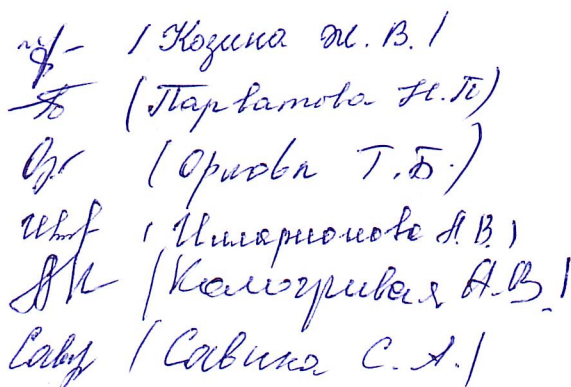 / Козина Ж. В. /
(Парватова Н. П)
(Орлова Т. Б.)
(Илларионова Н. В.)
/ Кологривая А. В. /
/ Савина С. А. /